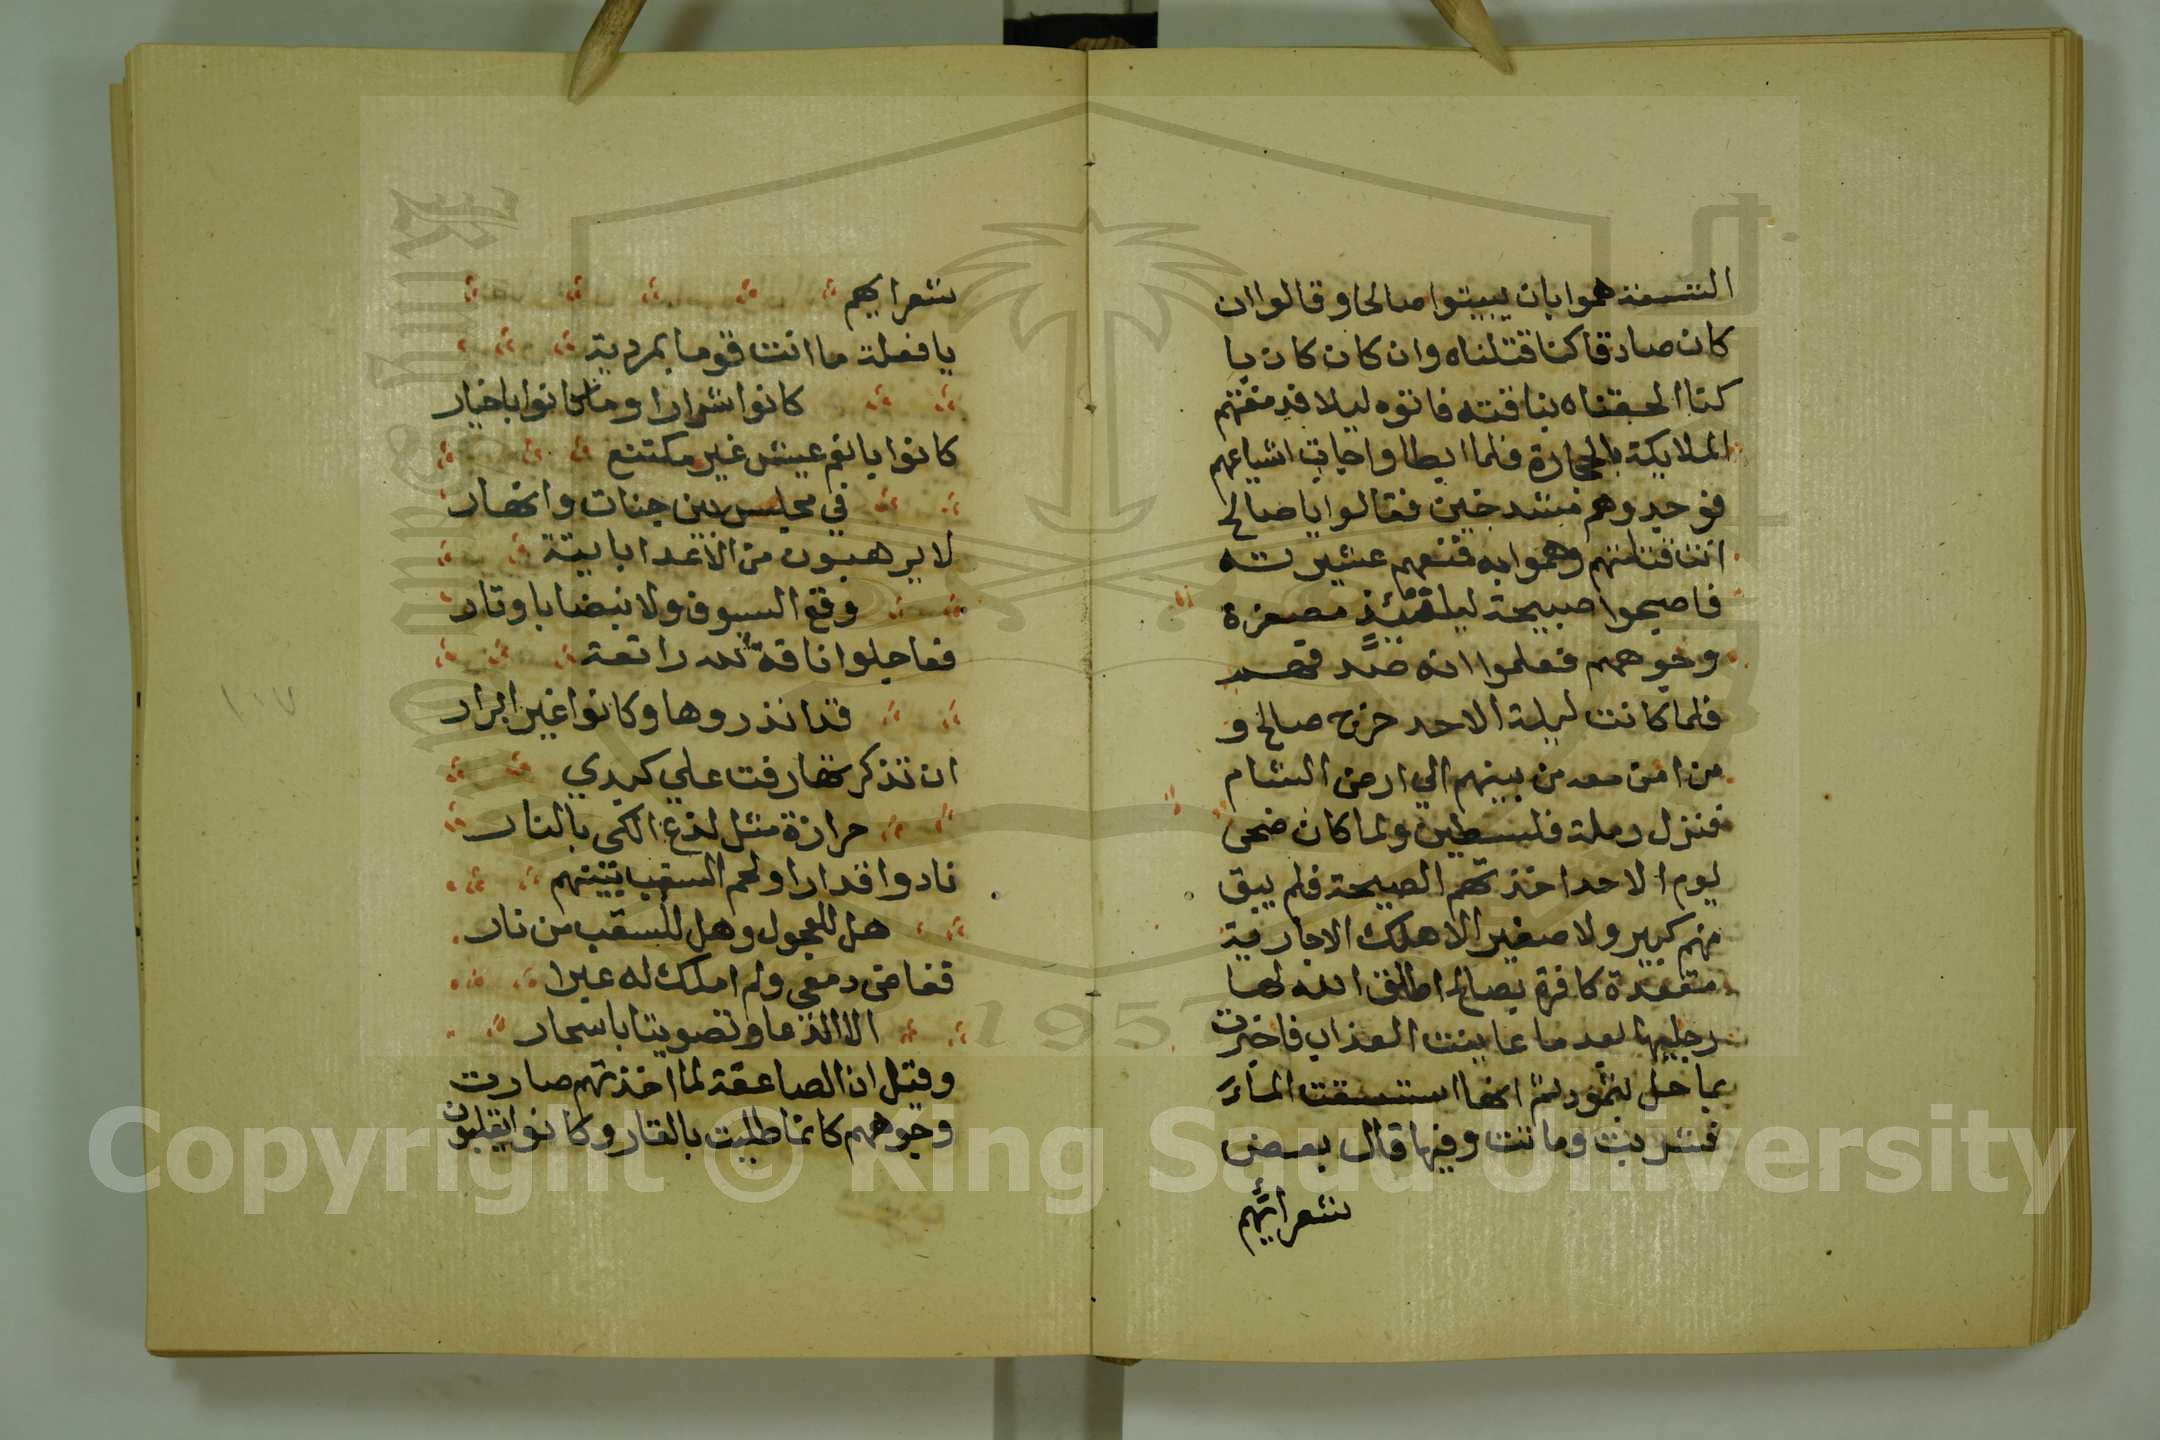 التسعة هموا بان يبيتوا صالحا وقالوا ان
كان صادقا كنا قتلناه وان كان كاذبا
كنا الحقناه بناقته فاتوه ليلا فدمغتهم
الملايكة بالحجارة فلما ابطاوا جات اشياعهم
فوجدوهم منشدخين فقالوا يا صالح
انت قتلتهم وهموا به فمنعهم عشيرته
فاصبحوا صبيحة ليلتئذ مصفرة
وجوههم فعلموا انه صدقهم
فلما كانت ليلة الاحد خرج صالح و
من امن معه من بينهم الي ارض الشام
فنزل رملة فلسطين ولما كان ضحى
يوم الاحد اخذتهم الصيحة فلم يبق
منهم كبير ولا صغير الا هلك الا جارية
مقعدة كافرة بصالح اطلق الله لها
رجليها بعد ما عاينت العذاب فاخبرت
بما حل بثمود ثم انها استسقت الماء
فشربت وماتت وفيها قال بعض
شعرائهم
شعرايهم
يا فعلة ما انت قوما بمردية
كانوا شرارا وما كانوا باخيار
كانوا بانعم عيش غير مكتنع
في مجلس بين جنات وانهار
لا يرهبون من الاعدا بايتة
وقع السيوف ولا نبضا باوتار
فعاجلوا ناقة لله راتعة
قد انذروها وكانوا غير ابرار
ان تذكر بها رفت علي كبدي
حرارة مثل لذع الكى بالنار
نادوا قدارا ولحم السقب بينهم
هل للعجول وهل للسقب من ثار
ففاض دمعى ولم املك له عبرا
وقيل ان الصاعقة لما اخذتهم صارت
وجوههم كانما طليت بالقار وكانوا يقلبون
Copyright © King Saud University
1957